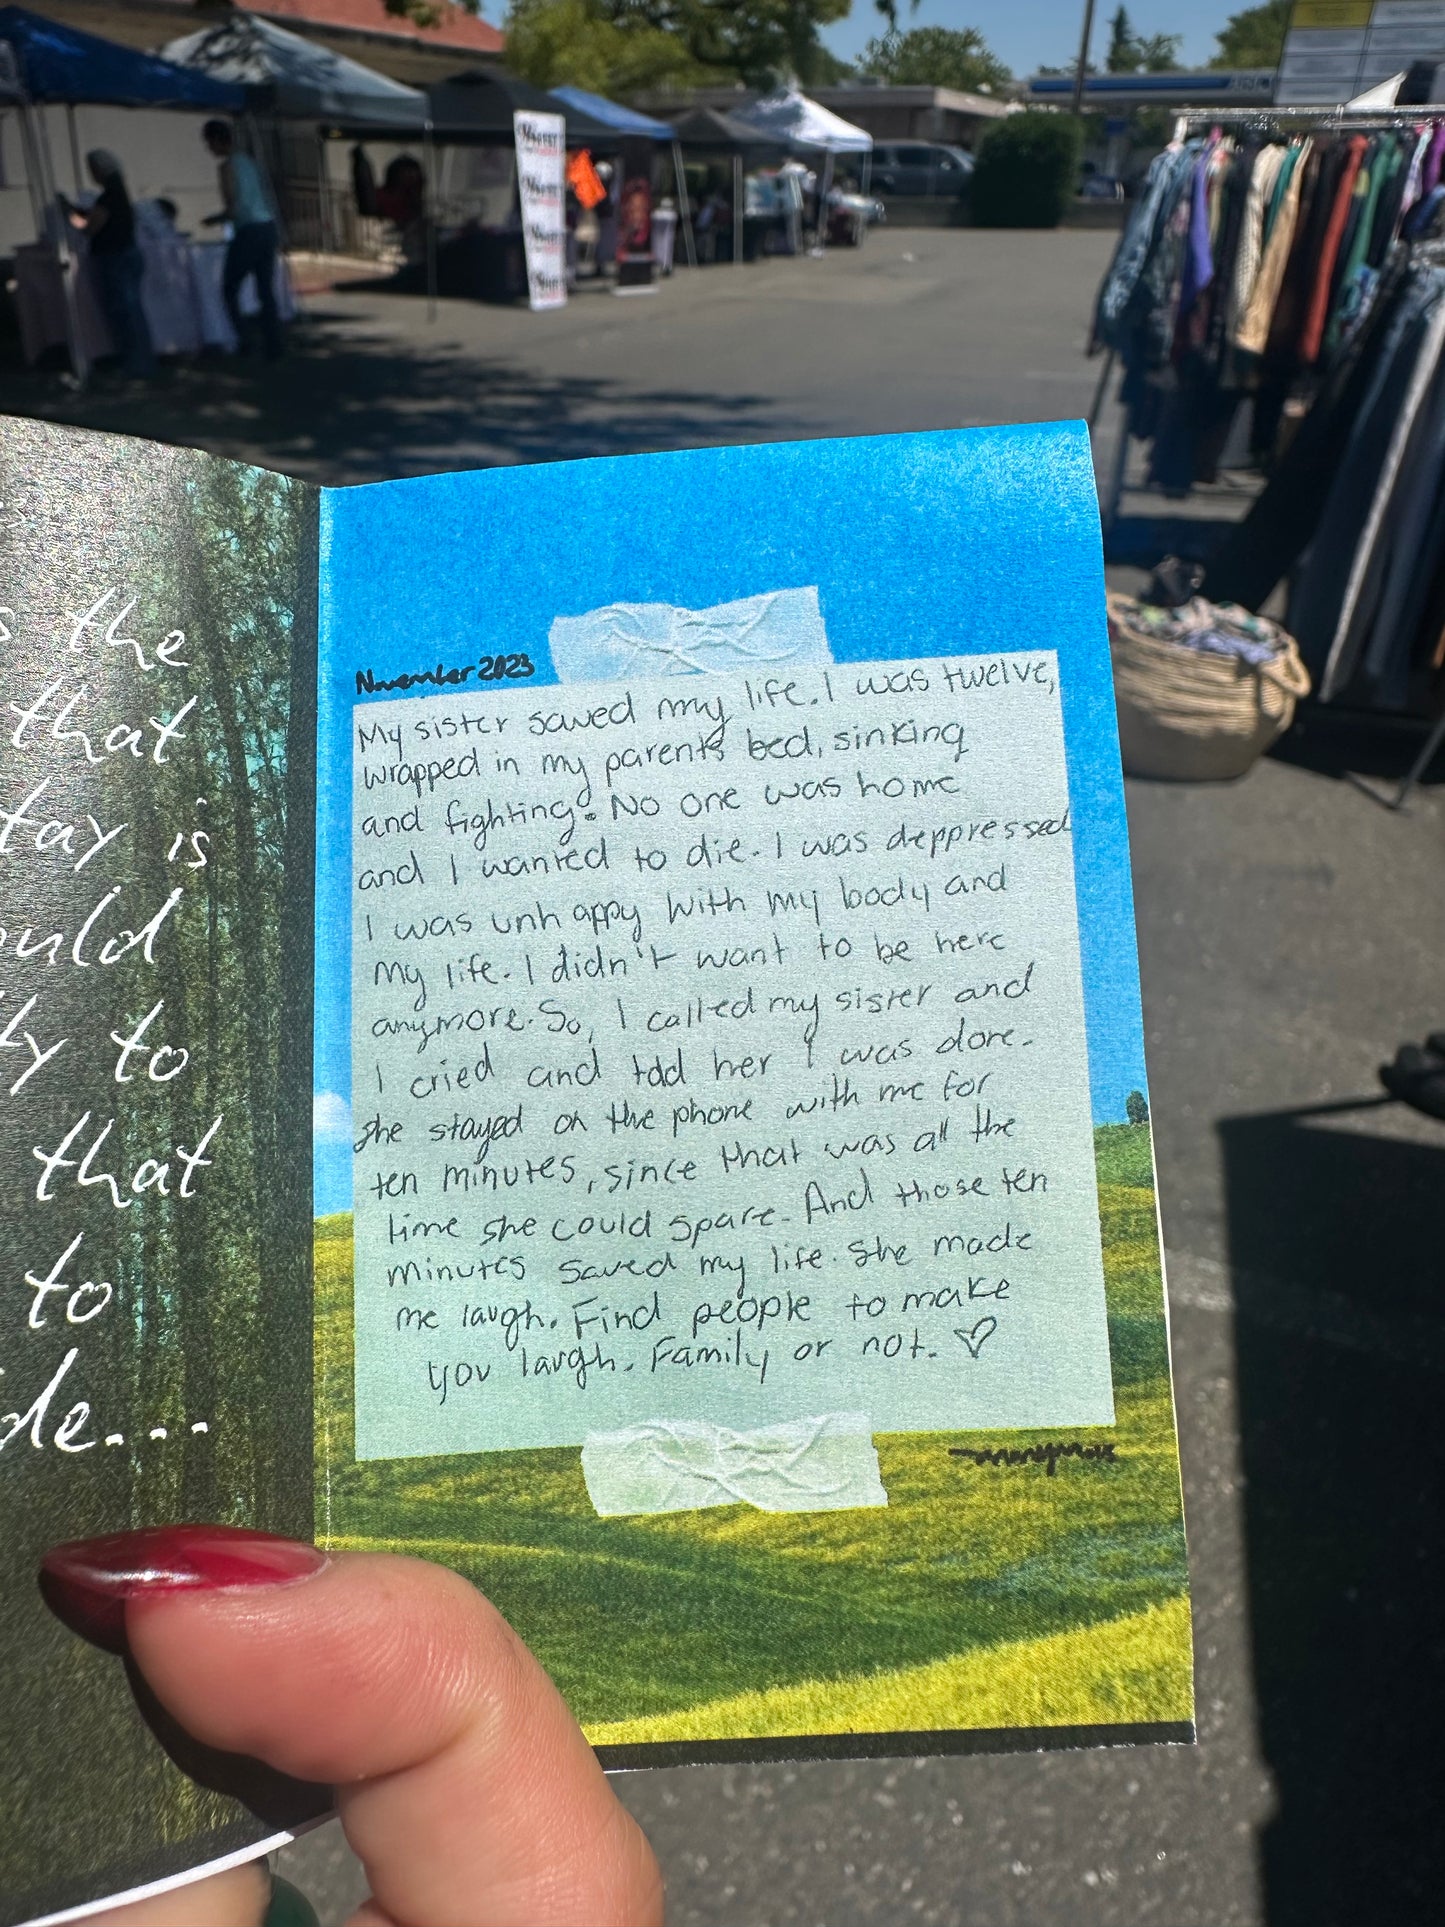 the
that
is
to
that
to
November 2023
My sister saved my life. I was twelve,
wrapped in my parents bed, sinking
and fighting. No one was home
and I wanted to die. I was deppressed
I was unhappy with my body and
my life. I didn't want to be here
anymore. So, I called my sister and
I cried and told her I was done.
She stayed on the phone with me for
ten minutes, since that was all the
time she could spare. And those ten
minutes saved my life. She made
me laugh. Find people to make
you laugh. Family or not. ♡